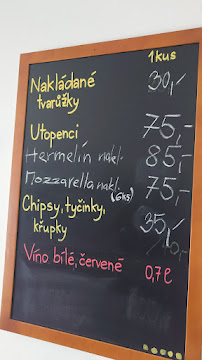 1 kus
Nakládané 30,-
tvarůžky
Utopenci 75,-
Hermelín nakl. 85,-
Mozzarella nakl. 75,-
(6ks)
Chipsy, tyčinky, 35,-
křupky
Víno bílé, červené 0,7l